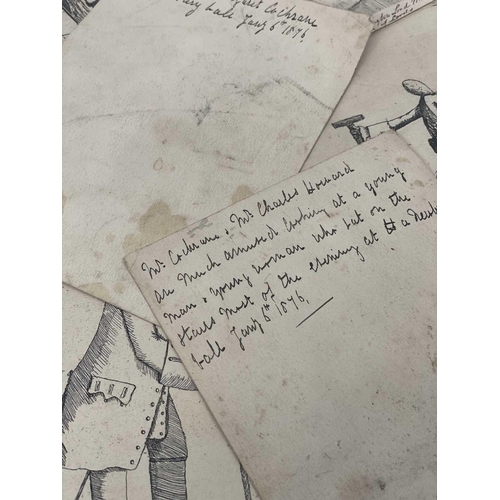 Cochrane
ball Jany 6th 1876.
Mr. Cochrane & Mr. Charles Howard
are much amused looking at a young
man & young woman who sat on the
stairs most of the evening at a
ball Jany 6th 1876.